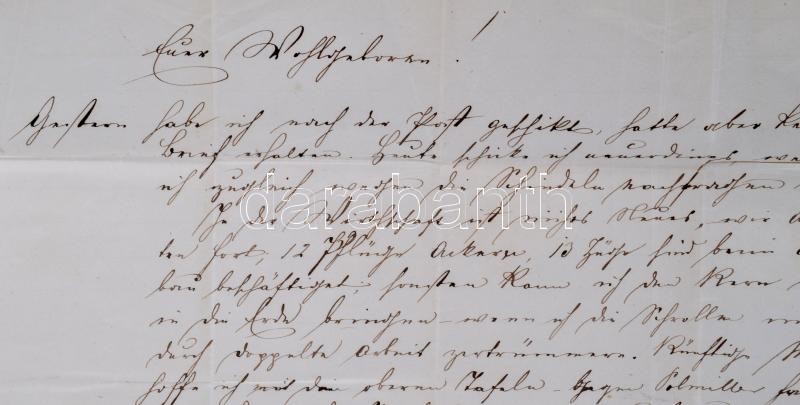 Euer Wohlgeboren!
Gestern habe ich nach der Post geschikt, hatte aber ke
Brief erhalten. Heute schicke ich neuerdings, we
ich zugleich wegen die Schindeln nachfragen
In der Wirthschaft ist nichts Neues, wir a
ten fort, 12 Pflüge Ackern, 13 Züge sind beim
bau beschäftiget, sonsten kann ich den Kern
in die Erde bringen – wenn ich die Schrollen
durch doppelte Arbeit zertrümmere. Künftige
hoffe ich mit den oberen Tafeln – gegen
darabanth